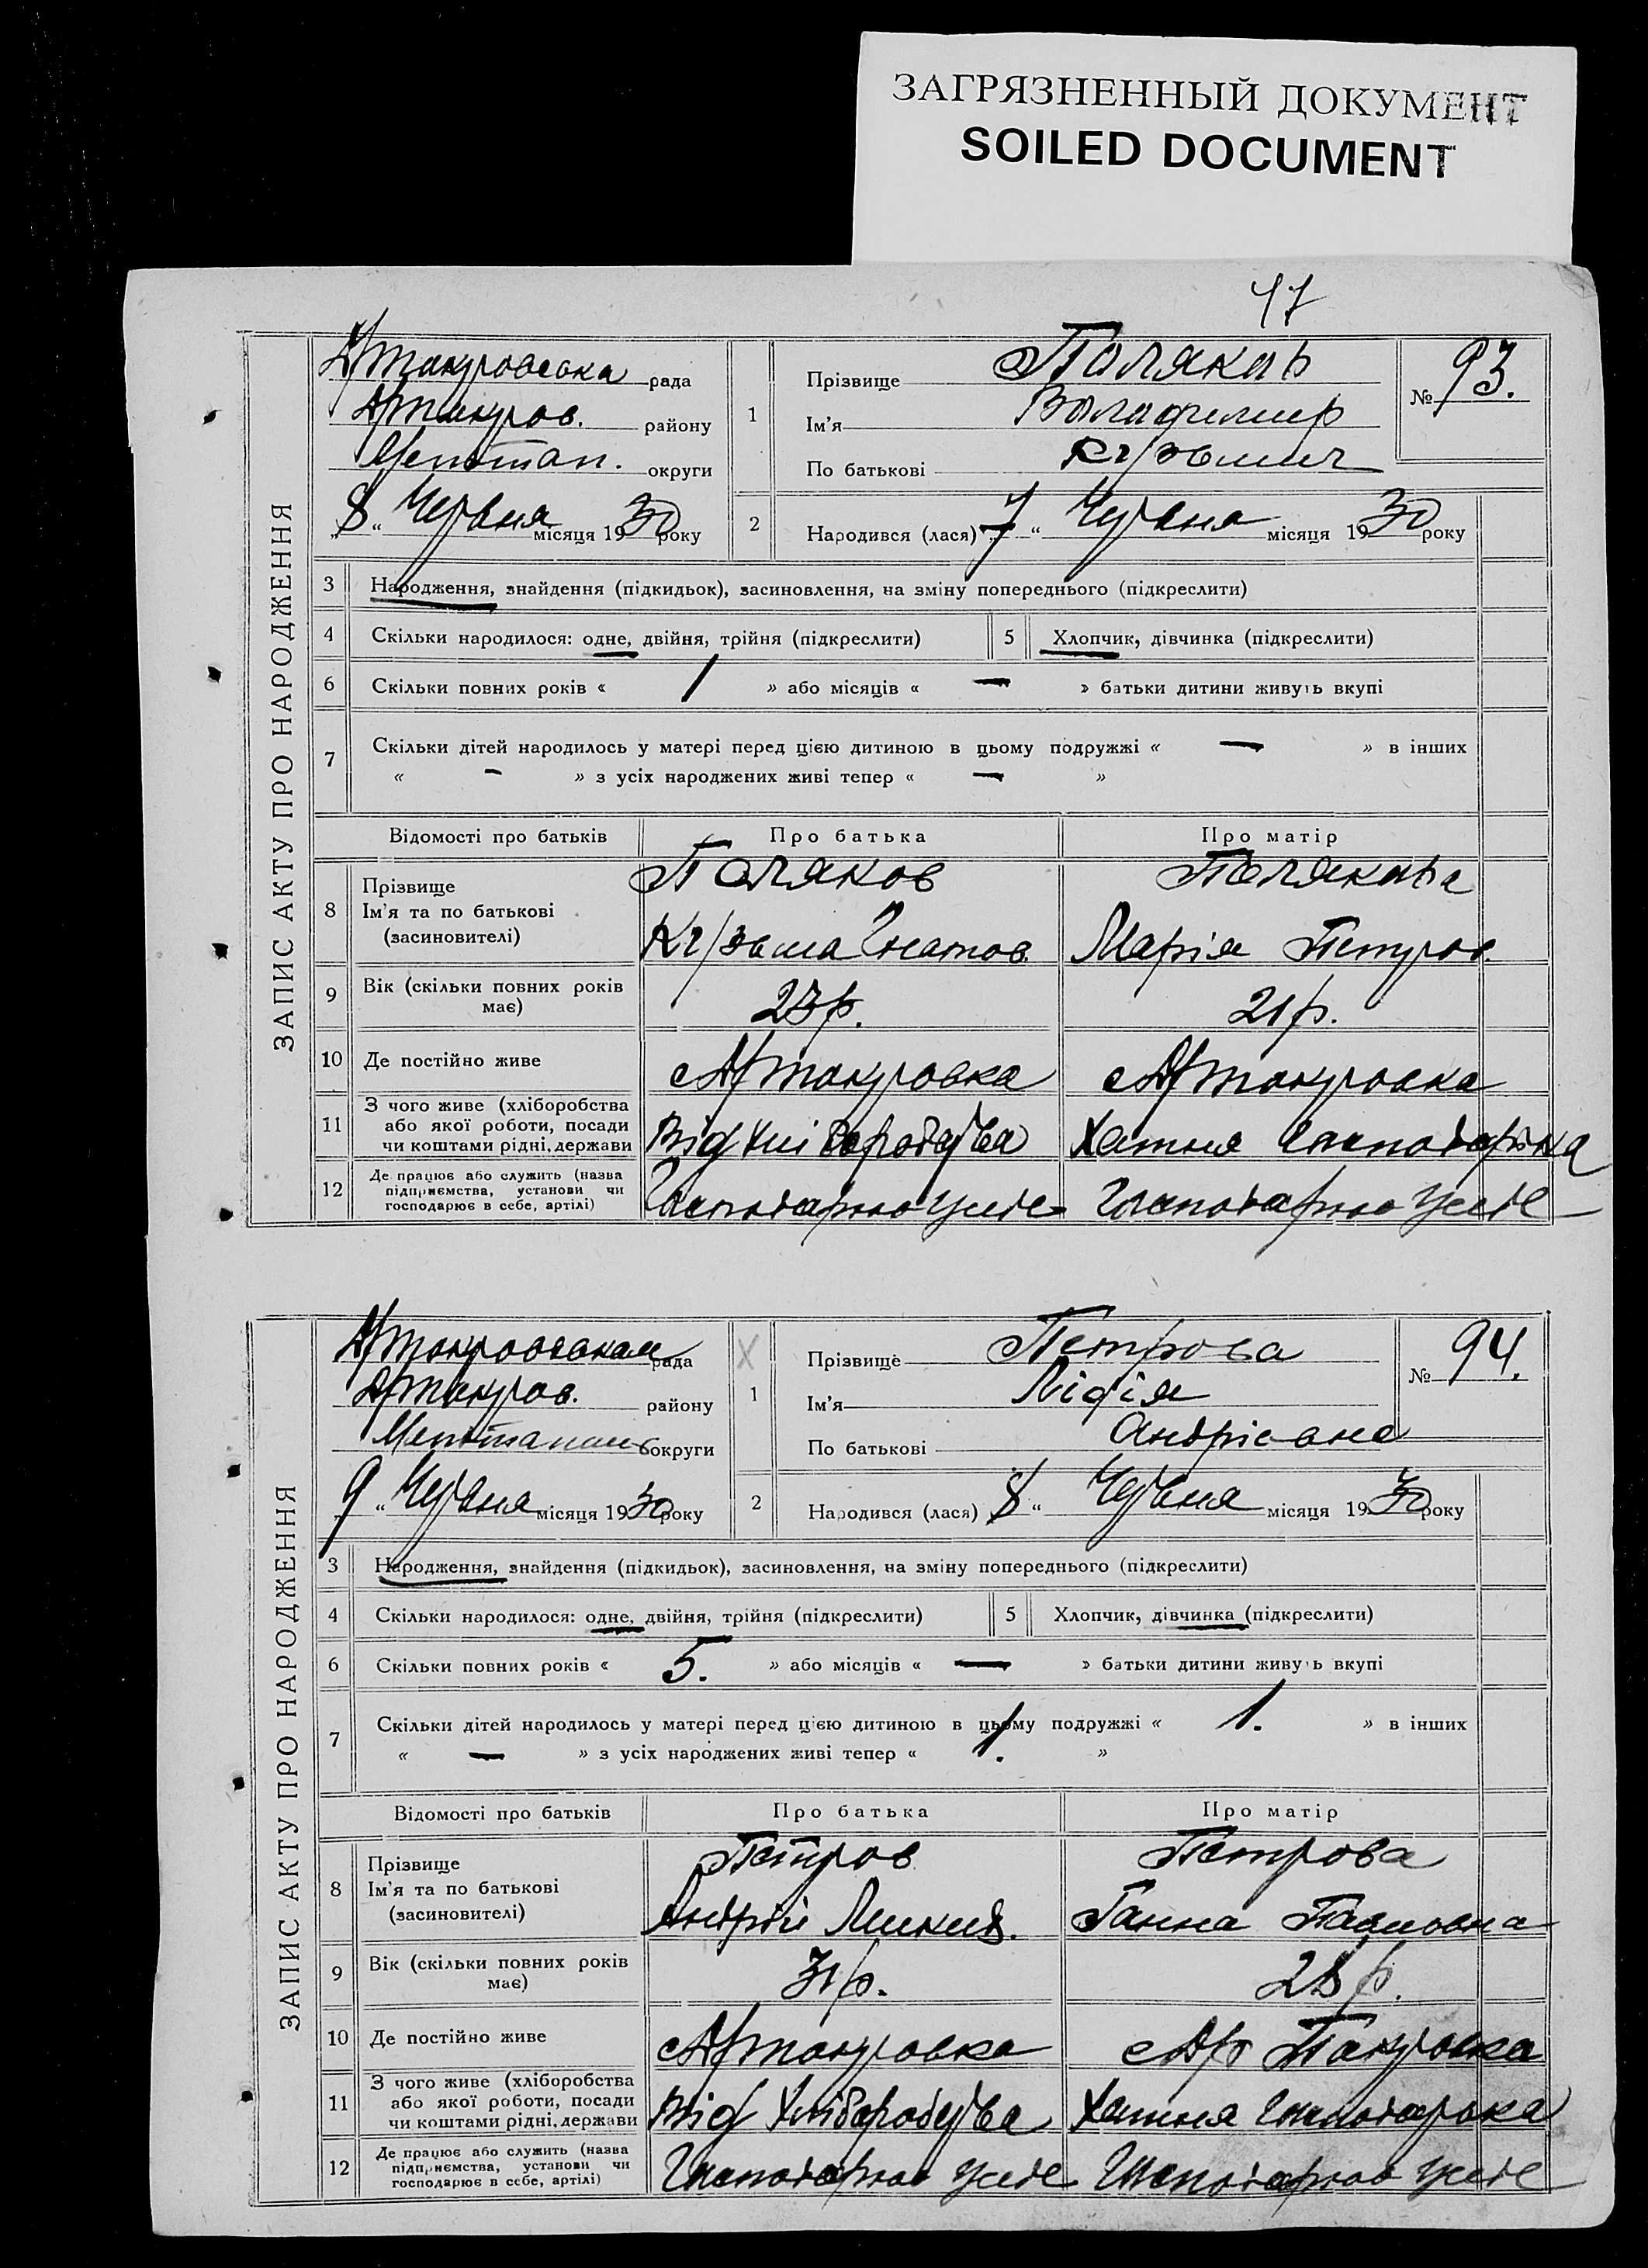 ЗАГРЯЗНЕННЫЙ ДОКУМЕНТ
SOILED DOCUMENT
47
ЗАПИС АКТУ ПРО НАРОДЖЕННЯ
рада
району
Мелітоп. округи
„8“ Червня місяця 1930 року
1
Прізвище Поляков
Ім'я Володимир
По батькові Кузьмич
№ 93.
2 Народився (лася) „7“ Червня місяця 1930 року
3 Народження, знайдення (підкидьок), засиновлення, на зміну попереднього (підкреслити)
4 Скільки народилося: одне, двійня, трійня (підкреслити) 5 Хлопчик, дівчинка (підкреслити)
6 Скільки повних років « 1 » або місяців « — » батьки дитини живуть вкупі
7 Скільки дітей народилось у матері перед цією дитиною в цьому подружжі « — » в інших
« - » з усіх народжених живі тепер « — »
Відомості про батьків Про батька Про матір
8 Прізвище Поляков Полякова
Ім'я та по батькові Кузьма Гнатов. Марія Петров.
(засновителі)
9 Вік (скільки повних років має) 23 р. 21 р.
10 Де постійно живе
11 З чого живе (хліборобства або якої роботи, посади чи коштами рідні, держави Від хліборобства Хатня господарка
12 Де працює або служить (назва підприємства, установи чи господарює в себе, артілі) Господарює у себе Господарює у себе
ЗАПИС АКТУ ПРО НАРОДЖЕННЯ
рада
району
округи
„9“ Червня місяця 1930 року
1
Прізвище Петрова
Ім'я Лідія
По батькові Андрієвна
№ 94.
2 Народився (лася) „8“ Червня місяця 1930 року
3 Народження, знайдення (підкидьок), засиновлення, на зміну попереднього (підкреслити)
4 Скільки народилося: одне, двійня, трійня (підкреслити) 5 Хлопчик, дівчинка (підкреслити)
6 Скільки повних років « 5. » або місяців « — » батьки дитини живуть вкупі
7 Скільки дітей народилось у матері перед цією дитиною в цьому подружжі « 1. » в інших
« — » з усіх народжених живі тепер « 1. »
Відомості про батьків Про батька Про матір
8 Прізвище Петров Петрова
Ім'я та по батькові Андрій Ганна Павловна
(засиновителі)
9 Вік (скільки повних років має) 31 р. 28 р.
10 Де постійно живе
11 З чого живе (хліборобства або якої роботи, посади чи коштами рідні, держави Від хліборобства Хатня господарка
12 Де працює або служить (назва підприємства, установи чи господарює в себе, артілі) Господарює у себе Господарює у себе